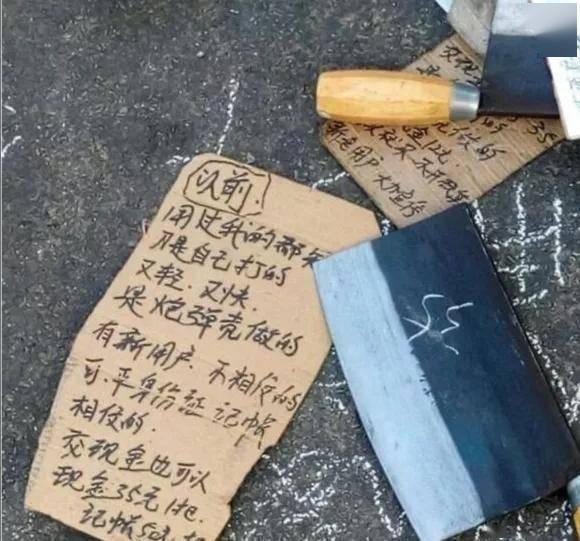 以前
用过我的都
刀是自己打的
又轻.又快.
是炮弹壳做的
有新用户.不相信的
可.平身份证 记帐
相信的.
交现金也可以
现金35元1把.
记帐50元
交现
35
做的
新老用户 大力宣传